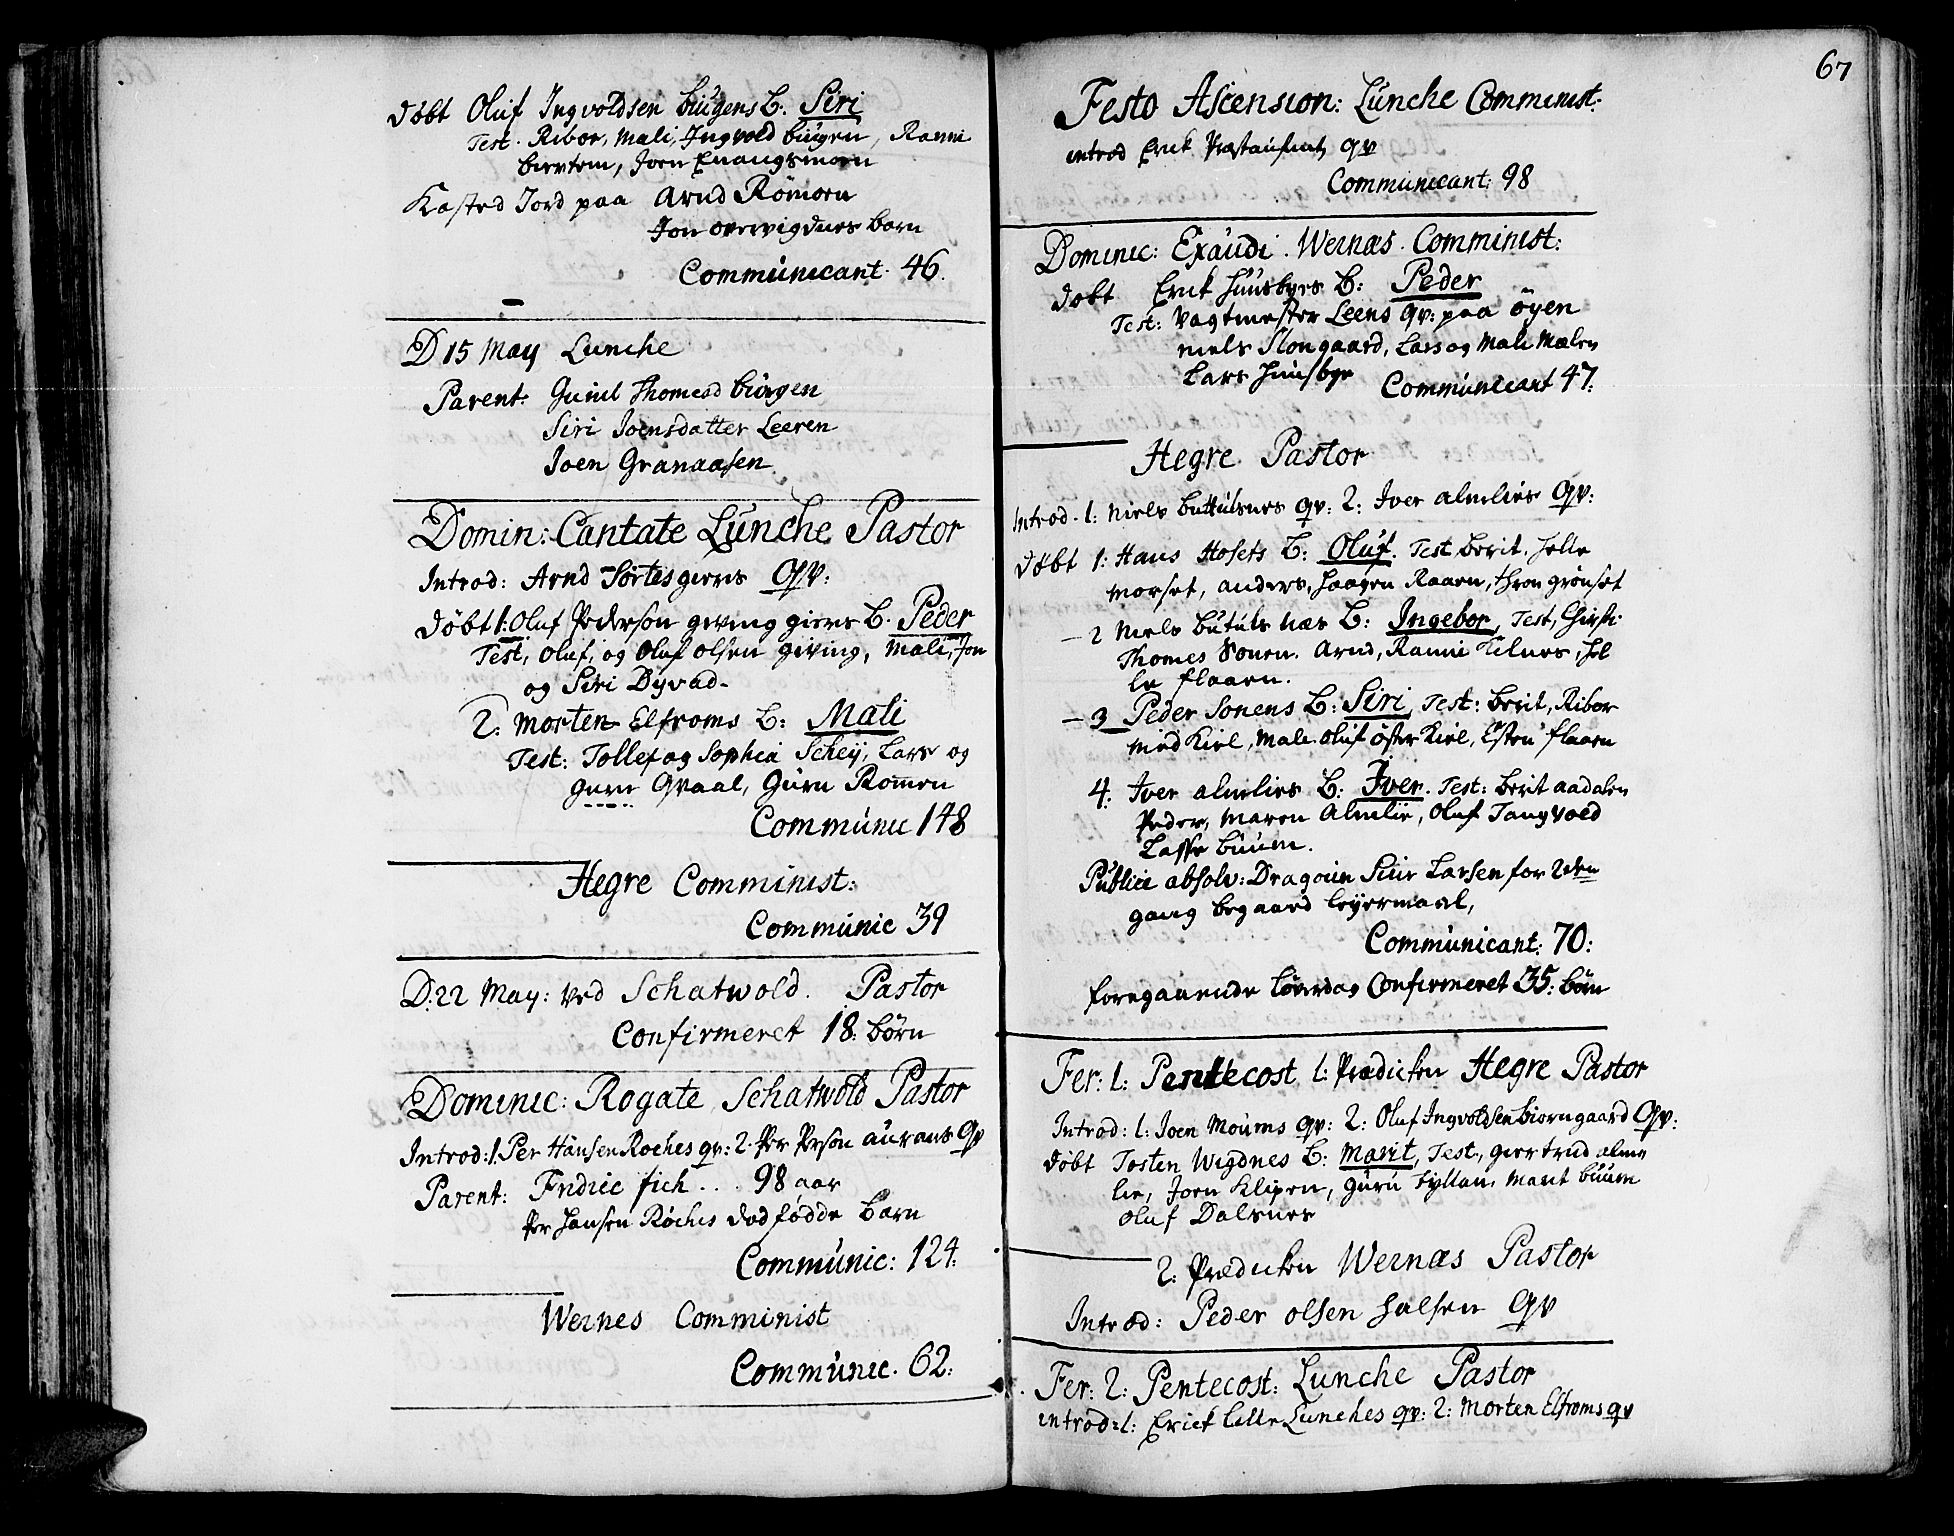 Døbt Oluf Ingvoldsen biugens B. Siri
Test. Ribor, Mali, Ingvold biugen, Ranni
biertem, Joen Enangsmoen
Kasted Jord paa Arnd Römoen
Jon overvigdnes barn
Communicant. 46.
D 15 May Lunche
Parent: Gunil Thomesd biugen
Siri Joensdatter Leeren
Joen Granaasen
Domin: Cantate Lunche Pastor
Introd: Arnd Sortesgierts qv:
Døbt 1: Oluf Pederson geving giers B. Peder
Test, Oluf, og Oluf Olsen giving, Mali, Jon
og Siri Dyvad.
2: Morten Elfroms B: Mali
Test: Tollef og Sophia Scheij, Lars og
guru Qvaal, Guru Romen
Communic 148
Hegre Comminist:
Communic 39
D: 22 May: ved Schatwold. Pastor
Confirmeret 18: børn
Dominic: Rogate Schatwold Pastor
Introd: 1. Per Hansen Roches qv: 2. Per Person aurans qv
Parent: Fridric fich... 98 aar
Per Hansen Røches dødfødde barn
Communic: 124:
Wernes Comminist
Communic. 62:
67
Festo Ascension: Lunche Comminist:
introd Erick Præstausent qv
Communicant: 98
Dominic: Exaudi. Wernæs. Comminist:
Døbt Erick Huusbyes B: Peder
Test: Vagtmester Leens qv: paa öyen
niels Slongaard, Lars og Mali Mælen
Lars Huusbye Communicant 47:
Hegre Pastor
Introd. 1: Niels buttulsnes qv: 2: Iver almlies qv:
Døbt 1: Hans Hosets B: Oluf. Test berit. Helle
morset, anders, Haagen Raaen, thron grönset
- 2 Niels butuls næs B: Ingebor, Test, Christi
Thomes Sonen. Arnd, Ranni Kilnes, Hel
le flaaen.
- 3 Peder Sonens B: Siri, Test: berit, Ribor
med Kiel, Mali Oluf öster Kiel, Esten flaaen
4: Iver almlies B: Iver. Test: berit aadalen
Peder, Maren Almlie, Oluf Tangvold
Lasse buum.
Publice absolv: Dragoun Siur Larsen for 2den
gang begaaed leyermaal,
Communicant: 70:
foregaaende Löverdag Confirmeret 35: børn
Fer: 1: Pentecost 1: Prædicken Hegre Pastor
Introd: 1: Joen Moums qv: 2: Oluf Ingvoldsen biorngaard qv:
Døbt Tosten Wigdnes B: Marit, Test, giertrud alm
lie, Joen Klipen, guru fyllan, Marit buum
Oluf Dalsnes
2: Prædicken Wernæs Pastor
Introd: Peder Olsen Halsen qv
Fer: 2: Pentecost: Lunche Pastor
introd: 1: Erick lille Lunches qv: 2: Morten Elfroms qv